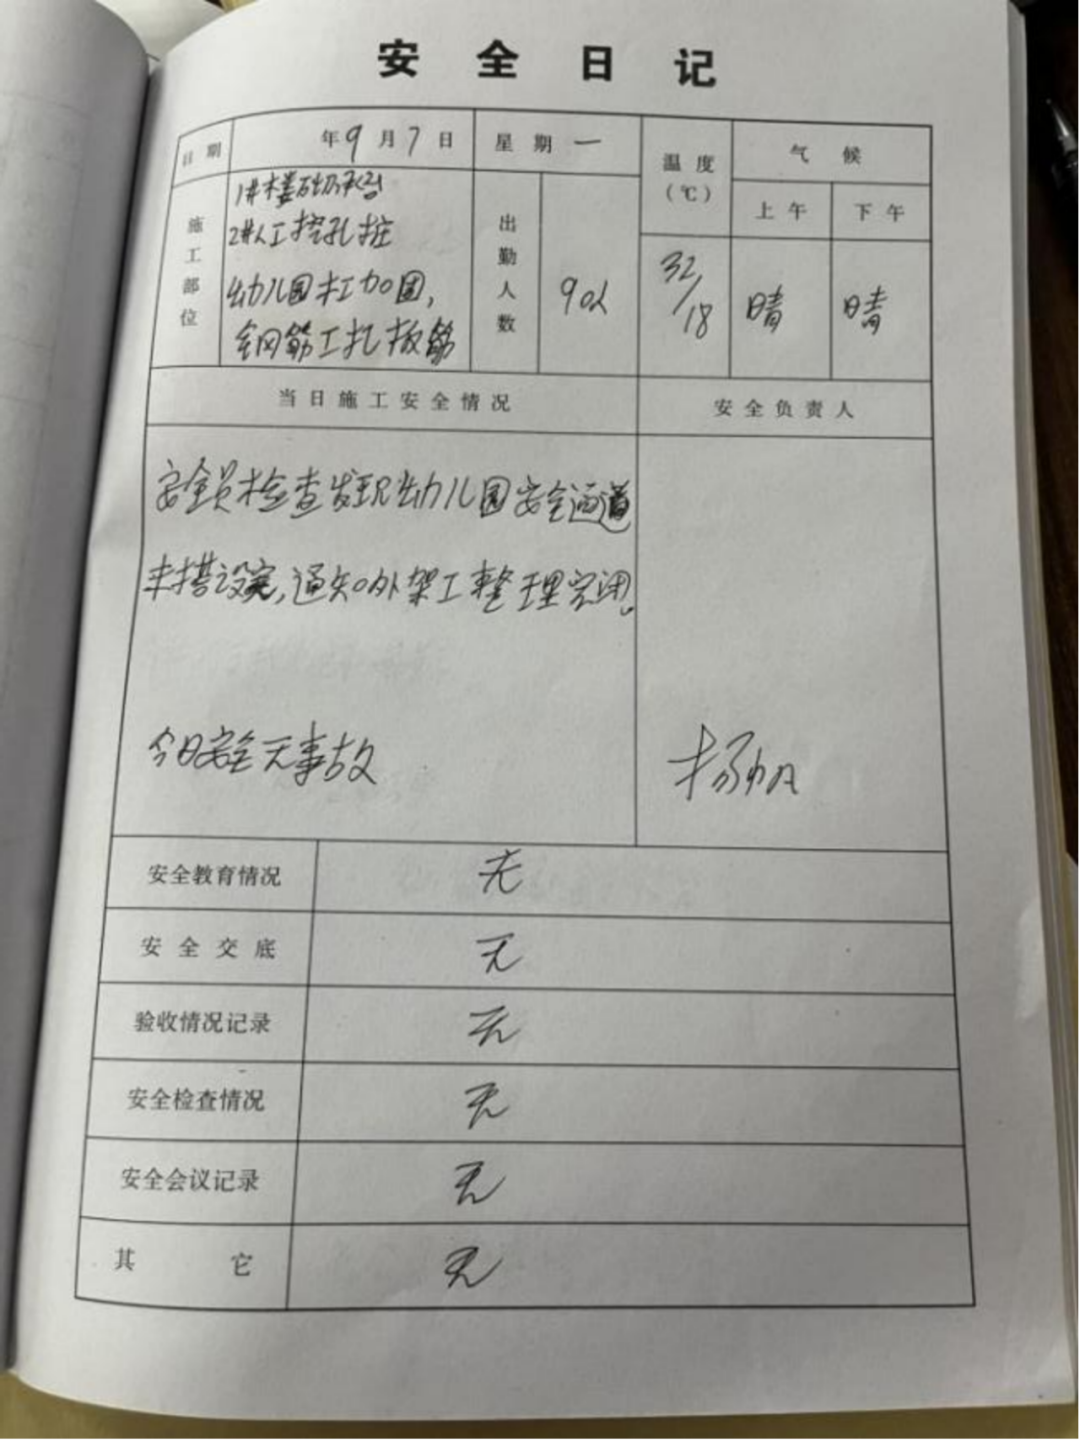 安全日记
日期 年9月7日 星期一 温度(℃) 气候
上午 下午
施工部位 出勤人数 90人 32/18 晴 晴
1#楼基础承台
2#人工挖孔桩
幼儿园木工加固，
钢筋工扎板筋
当日施工安全情况 安全负责人
安全员检查发现幼儿园安全通道
未搭设完，通知外架工整理完闭。
今日安全无事故 杨帆
安全教育情况 无
安全交底 无
验收情况记录 无
安全检查情况 无
安全会议记录 无
其它 无